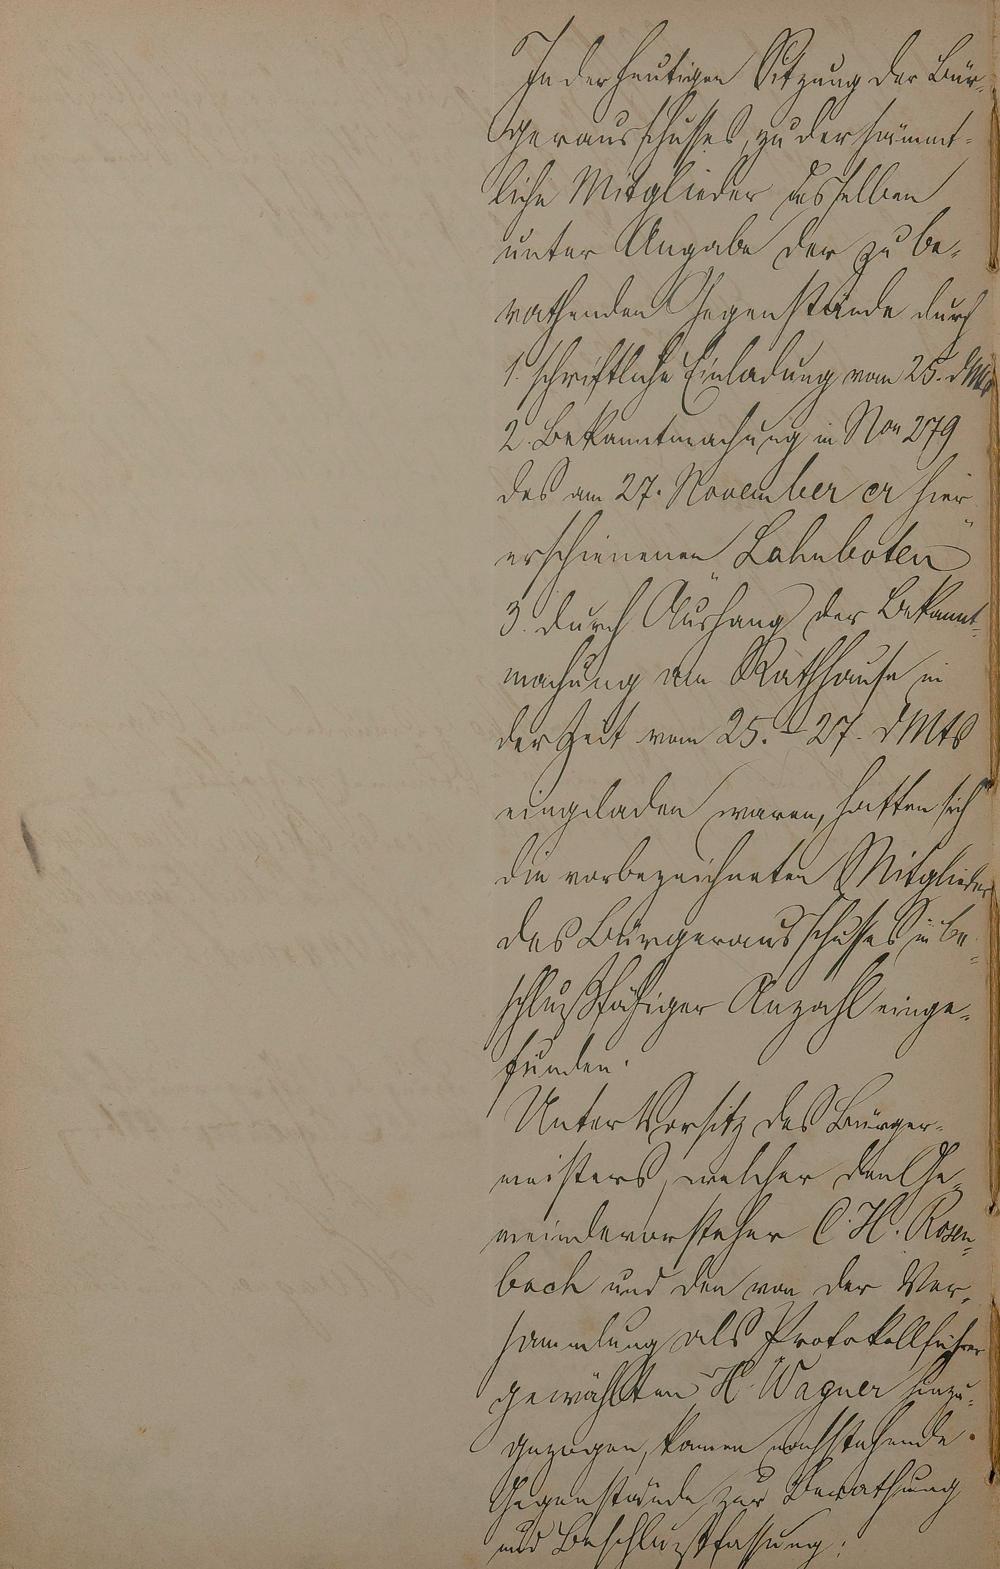 In der heutigen Sitzung der Bür-
gerausschusses, zu der sämmt-
liche Mitglieder desselben
unter Angabe der zu be-
rathenden Gegenstände durch
1. schriftliche Einladung vom 25. d Mts
2. Bekanntmachung in Non 279
des am 27. November cr hier
erschienenen "Lahnboten"
3. durch Aushang der Bekannt-
machung am Rathhause in
der Zeit vom 25. - 27. d Mts
eingeladen waren, hatten sich
die vorbezeichneten Mitglieder
des Bürgerausschusses in be-
schlußfähiger Anzahl einge-
funden.
Unter Vorsitz des Bürger-
meisters, welcher den Ge-
meindevorsteher C. H. Rosen-
bach und den von der Ver-
sammlung als Protokollführer
gewählten H. Wagner hinzu-
gezogen, kamen nachstehende
Gegenstände zur Berathung
und Beschlußfassung: